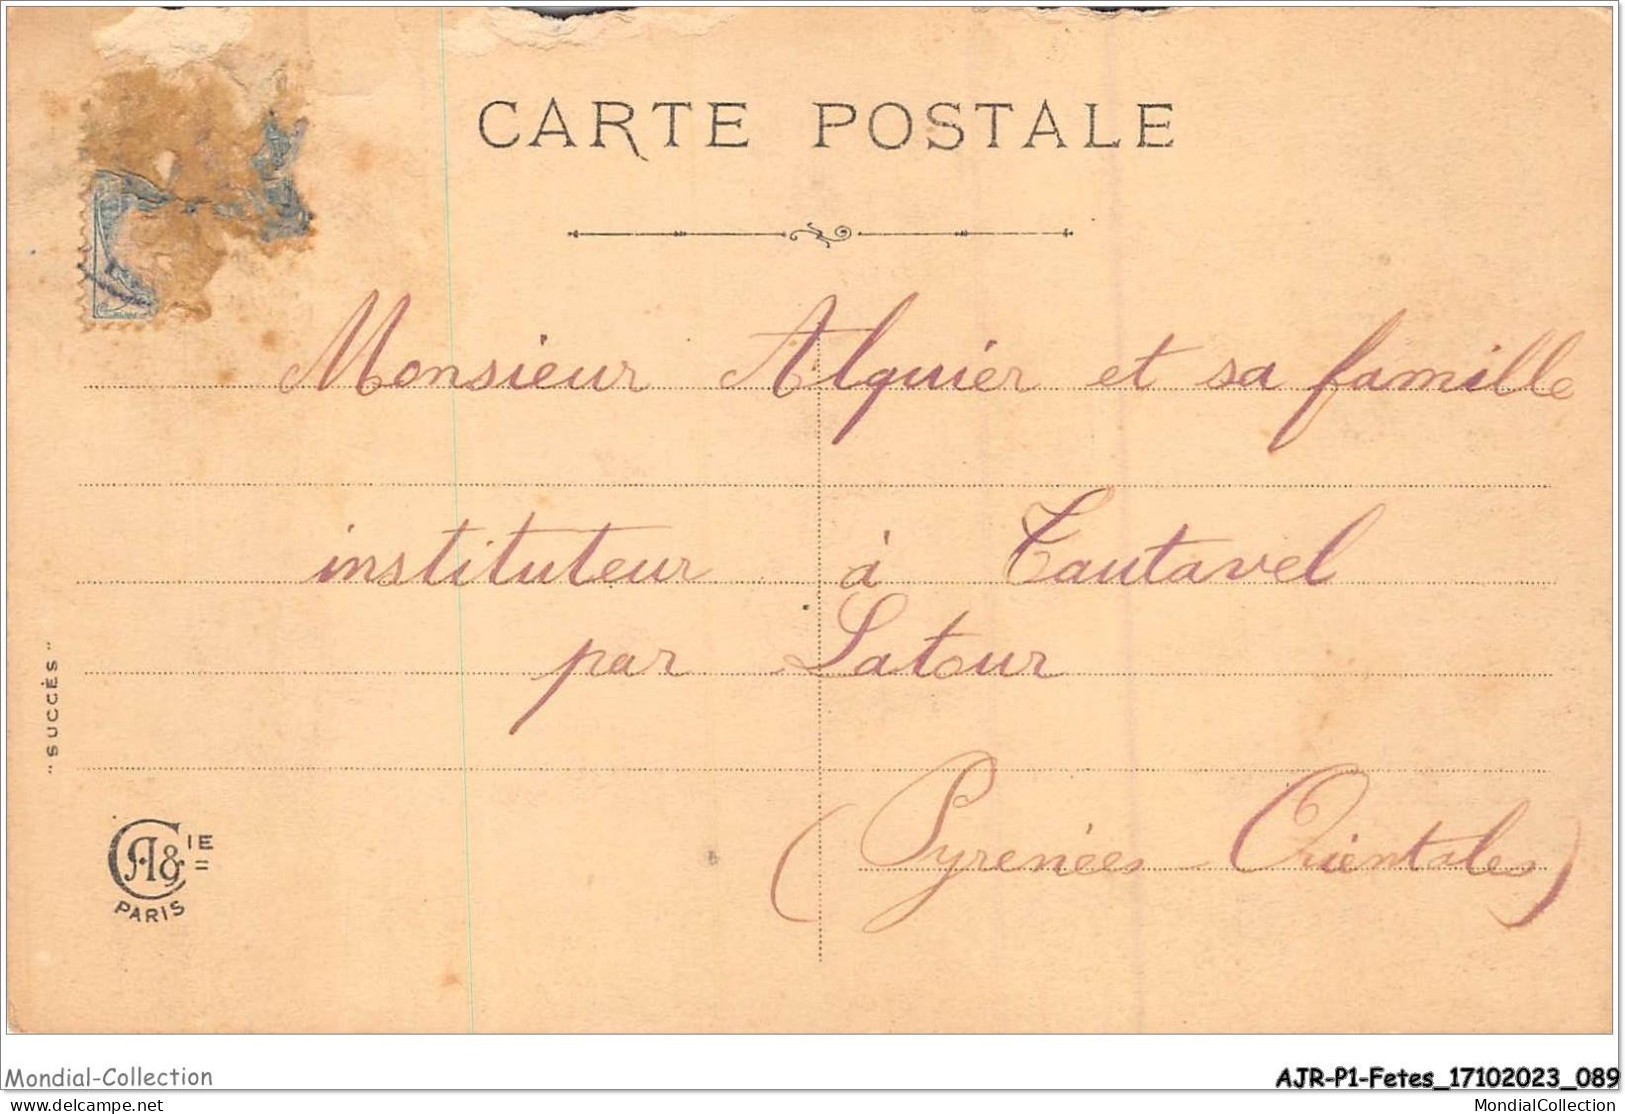 CARTE POSTALE
Monsieur Alquier et sa famille
instituteur à Tautavel
par Latour
(Pyrénées Orientales)
"SUCCÈS"
CA & IE
PARIS
Mondial-Collection
AJR-P1-Fetes_17102023_089
mondial-collection
MondialCollection